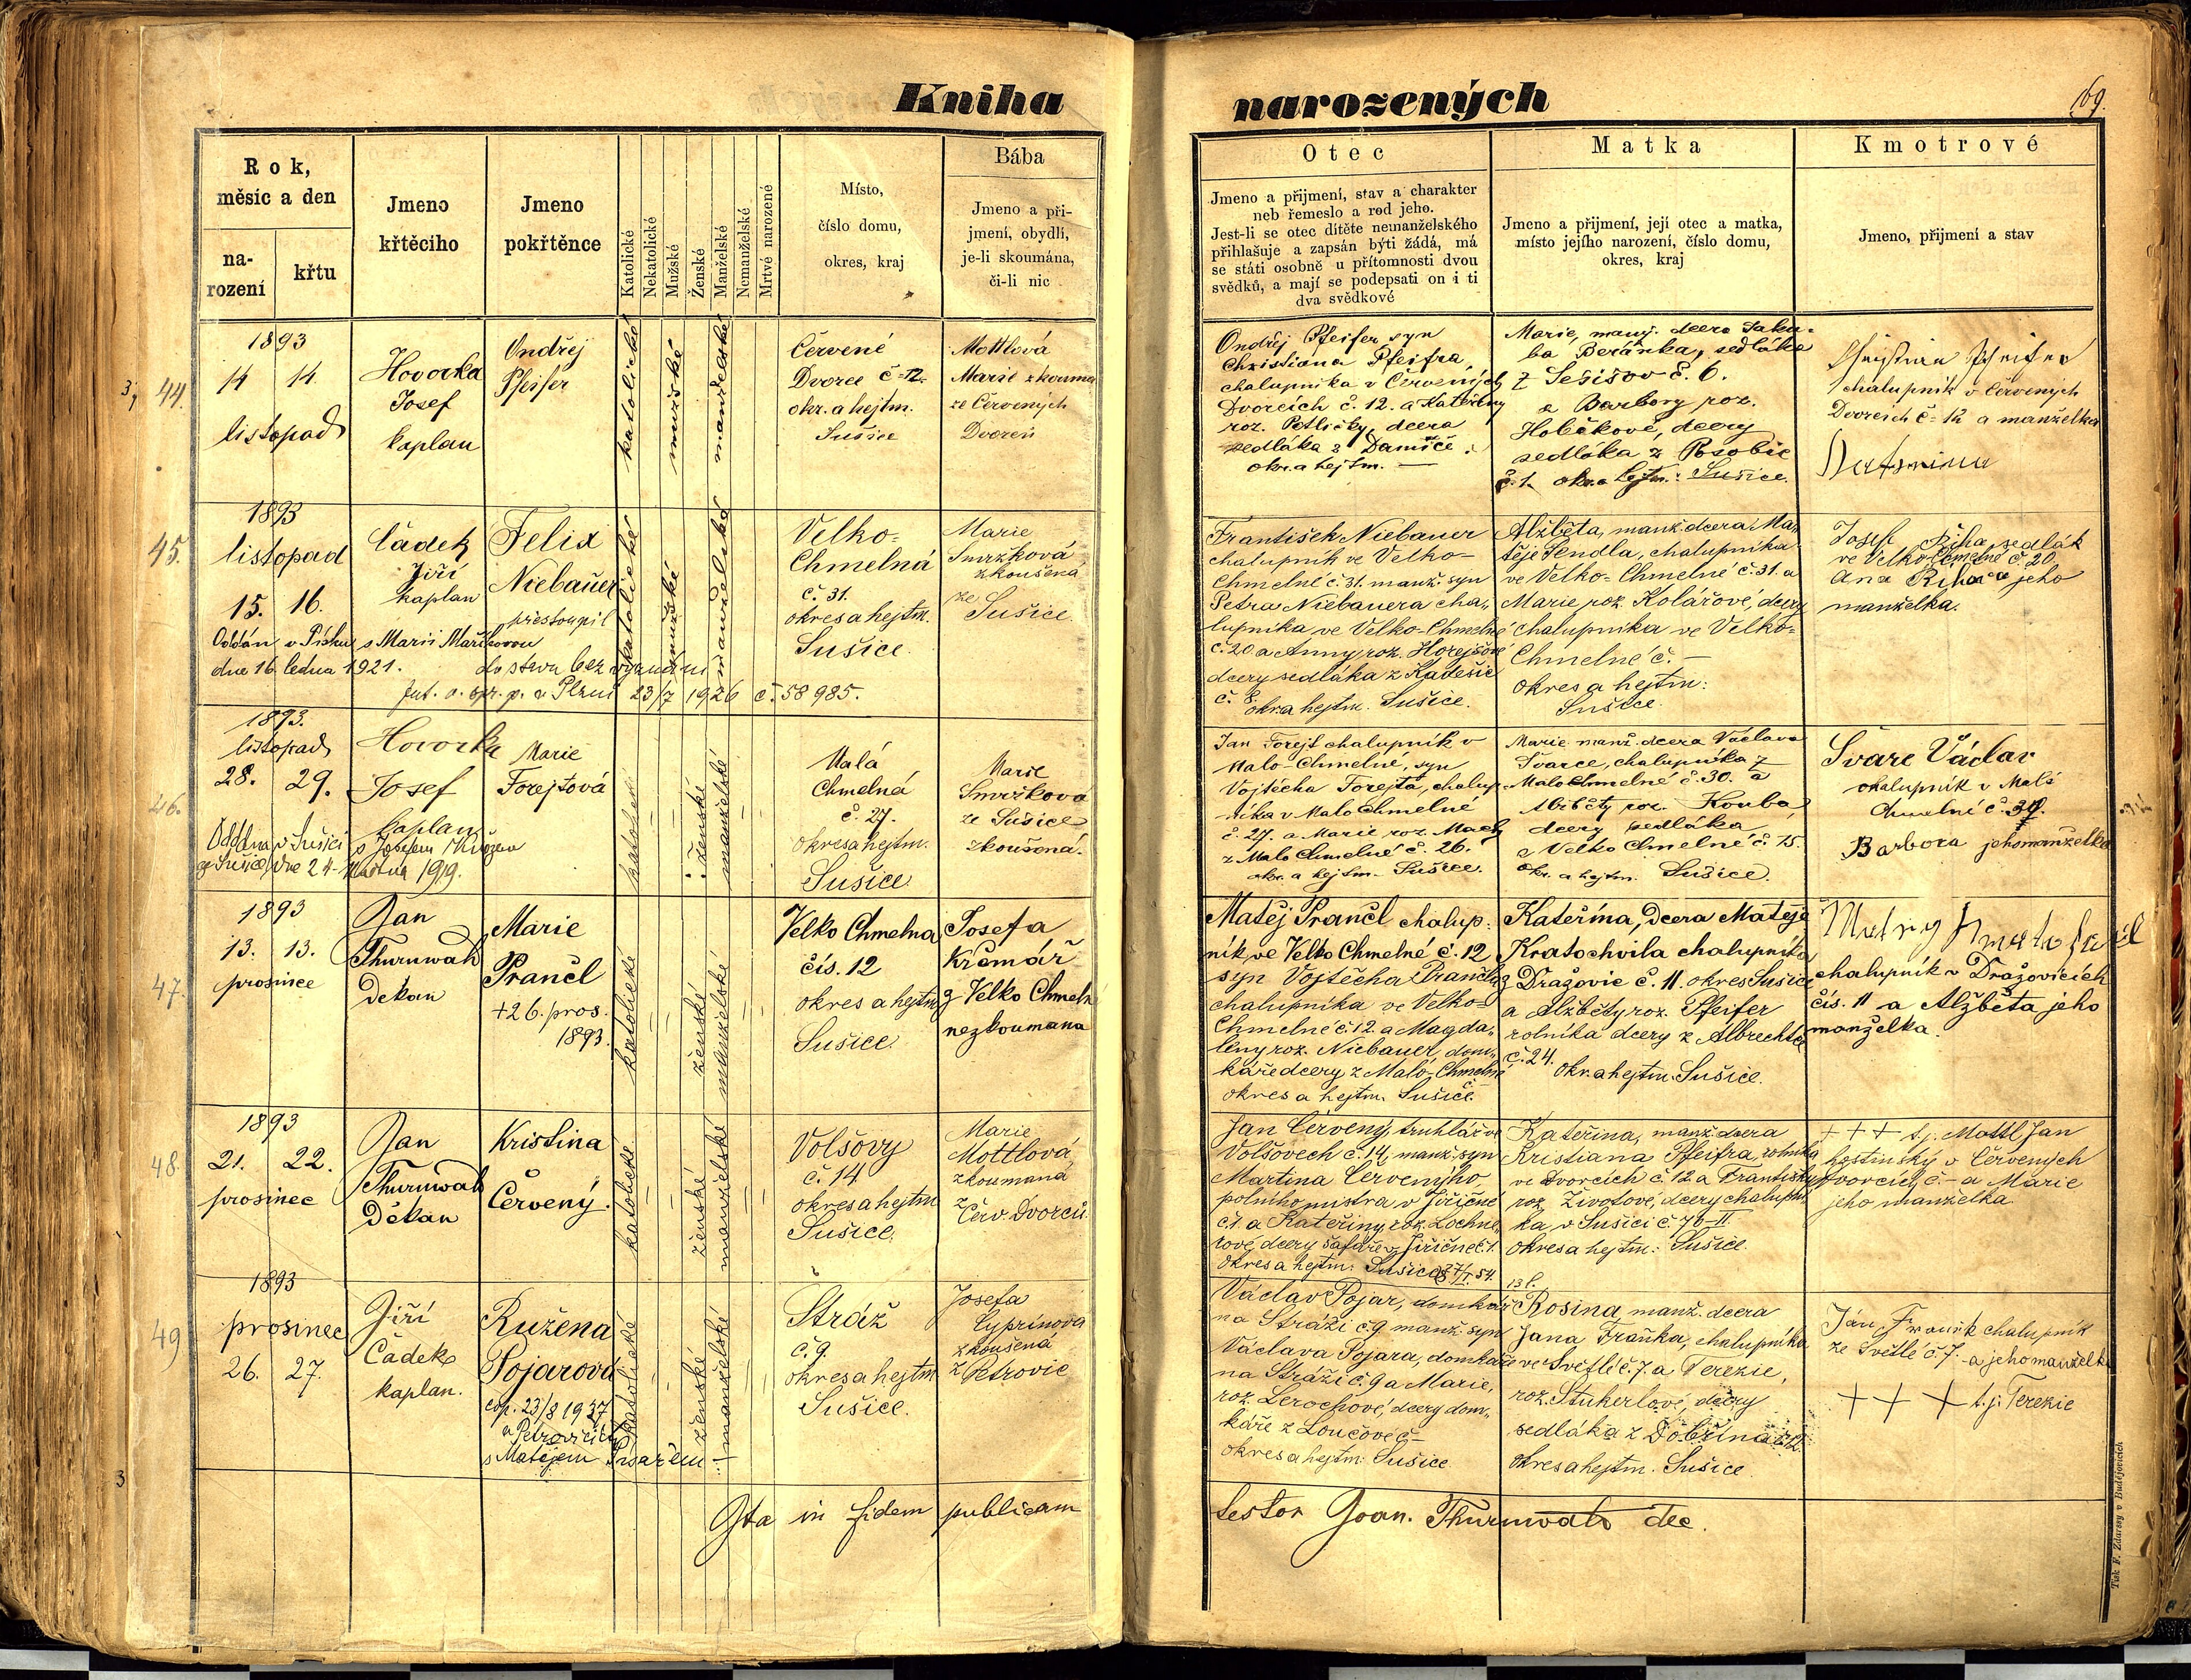 Kniha
narozených
169.
Rok,
měsíc a den
na-
rození
křtu
Jmeno
křtěcího
Jmeno
pokřtěnce
Katolické
Nekatolické
Mužské
Ženské
Manželské
Nemanželské
Mrtvé narozené
Místo,
číslo domu,
okres, kraj
Bába
Jmeno a při-
jmení, obydlí,
je-li skoumána,
či-li nic
Otec
Jmeno a přijmení, stav a charakter
neb řemeslo a rod jeho.
Jest-li se otec dítěte nemanželského
přihlašuje a zapsán býti žádá, má
se státi osobně u přítomnosti dvou
svědků, a mají se podepsati on i ti
dva svědkové
Matka
Jmeno a přijmení, její otec a matka,
místo jejího narození, číslo domu,
okres, kraj
Kmotrové
Jmeno, přijmení a stav
44.
1893
14 14
listopad
Hovorka
Josef
kaplan
Ondřej
Pfeifer
katolické
mužské
manželské
Červené
Dvorce č=12.
okr. a hejtm.
Sušice
Mottlová
Marie zkouma
ze Červených
Dvorců
Ondřej Pfeifer syn
Christiána Pfeifra,
chalupníka v Červených
Dvorcích č. 12. a Kateřiny
roz. Petličky, dcera
sedláka z Damíče
okr. a hejtm. —
Marie, manž. dcera Jaku-
ba Beránka, sedláka
z Sešišov č. 6.
a Barbory roz.
Hobčkové, dcery
sedláka z Posobic
č. 1. okr. a hejtm.: Sušice.
Christian Pfeifer
chalupník v Červených
Dvorcích č= 12 a manželka
Katerina
45.
1893
listopad
15. 16.
Čádek
Jiří
kaplan
Felix
Niebauer
přestoupil
Oddán v Písku s Marií Maříkovou
dne 16. ledna 1921. do stavu bez vyznání
23/7 1926 č. 58 985.
katolické
mužské
manželské
Velko-
Chmelná
č. 31.
okres a hejtm.
Sušice.
Marie
Smržková
zkoušená
ze
Sušice.
František Niebauer
chalupník ve Velko-
Chmelné č. 31. manž. syn
Petra Niebauera cha-
lupníka ve Velko-Chmelné
č. 20 a Anny roz. Horejšové
dcery sedláka z Kadešic
č. 8. okr. a hejtm. Sušice.
Alžběta, manž. dcera Ma-
těje Pendla, chalupníka
ve Velko-Chmelné č. 31. a
Marie roz. Kolářové, dcery
chalupníka ve Velko-
Chmelné č. —
okres a hejtm:
Sušice.
Josef Říha, sedlák
ve Velko Chmelné č. 20.
Ana Říha a jeho
manželka.
46.
1893.
listopad
28. 29.
Hovorka
Josef
kaplan
Marie
Forejtová
Oddána v Sušici s Josefem
ze Sušice, dne 24. 1919.
katolické
ženské
manželské
Malá
Chmelná
č. 27.
okres a hejtm.
Sušice.
Marie
Smržková
ze Sušice
zkoušená.
Jan Forejt chalupník v
Malo-Chmelné, syn
Vojtěcha Forejta, chalup-
níka v Malo Chmelné
č. 27. a Marie roz. Mach
z Malo Chmelné č. 26.
okr. a hejtm. Sušice.
Marie manž. dcera Václava
Švarce, chalupníka z
Malo Chmelné č. 30. a
Alžběty roz. Kouba
dcery sedláka
z Velko Chmelné č. 15.
Okr. a hejtm. Sušice.
Švarc Václav
chalupník v Malé
Chmelné č. 34.
Barbora jeho manželka
47.
1893
13. 13.
prosince
Jan
Thurnwald
Děkan
Marie
Prančl
+26. pros.
1893.
katolické
ženské
manželské
Velko Chmelna
čís. 12
okres a hejtm
Sušice.
Josefa
Krčmář
z Velko Chmeln
nezkoumana
Matěj Prančl chalup-
ník ve Velko Chmelné č. 12
syn Vojtěcha Prančla
chalupníka ve Velko-
Chmelné č. 12. a Magda-
leny roz. Niebauer, dom-
káře dcery z Malo-Chmelné
č. —
okres a hejtm. Sušice.
Kateřina, dcera Matěje
Kratochvila chalupníka
z Dražovic č. 11. okres Sušice
a Alžběty roz. Pfeifer
rolníka dcery z Albrechtic
č. 24.
okr. a hejtm. Sušice.
chalupník v Dražovicích
čís. 11 a Alžběta jeho
manželka.
48.
1893
21. 22.
prosinec
Jan
Thurnwald
Děkan
Kristina
Červený.
katolické
ženské
manželské
Volšovy
č. 14
okres a hejtm
Sušice.
Marie
Mottlová
zkoumaná
z
Červ. Dvorců.
Jan Červený, truhlář ve
Volšovech č. 14, manž. syn
Martina Červenýho,
polního mistra v Jiřičné
č. 1. a Kateřiny, roz. Lochne-
rové, dcery šafáře z Jiřičné č. 1.
Okres a hejtm: Sušice
27/I. 54.
Kateřina, manž. dcera
Kristiana Pfeifra, rolníka
ve Dvorcích č. 12 a Františky
roz. Životové, dcery chalupní-
ka v Sušici č. 76-II.
okres a hejtm: Sušice.
+ + + t. j. Mottl Jan
hostinský v Červených
Dvorcích, č. – a Marie
jeho manželka
49
1893
prosinec
26. 27.
Jiří
Čádek
kaplan.
Růžena
Pojarová
cop. 23/8 1937
v Petrovicích
s Matějem Písařem
katolické
ženské
manželské
Stráž
č. 9.
okres a hejtm
Sušice.
Josefa
Cyprinová
zkoušená
z Petrovic
Václav Pojar, domkář
na Stráži č. 9 manž. syn
Václava Pojara, domkáře
na Stráži č. 9 a Marie,
roz. Lerochové, dcery dom-
káře z Loučové č —
okres a hejtm: Sušice.
Rosina, manž. dcera
Jana Fraňka, chalupníka
ve Světlé č. 7. a Terezie,
roz. Stukerlové, dcery
sedláka z Dobřína č. 12
okres a hejtm. Sušice.
Ján Franik chalupník
ze Světlé č. 7. a jeho manželka
+ + + t. j. Terezie
Ita in fidem publicam
testor Joan. Thurnwald dec.
Tisk F. Zdarssy v Budějovicích